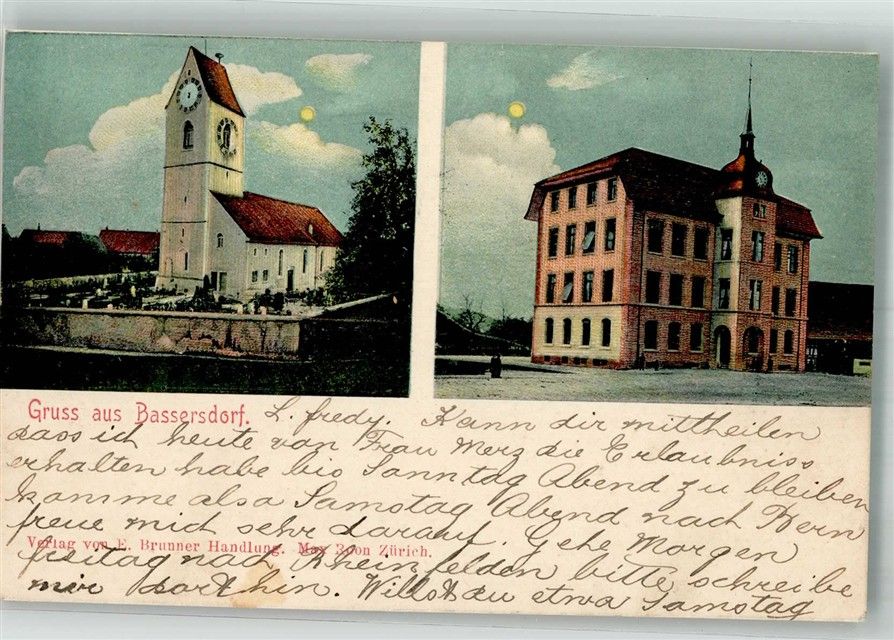 Gruss aus Bassersdorf. L. fredy. Kann dir mittheilen
dass ich heute von Frau Merz die Erlaubniss
erhalten habe bis Sonntag Abend zu bleiben
komme also Samstag Abend nach Bern
freue mich sehr darauf. Gehe Morgen
Verlag von E. Brunner Handlung. Max Boon Zürich.
freitag nach Rheinfelden bitte schreibe
mir dorthin. Willst du etwa Samstag